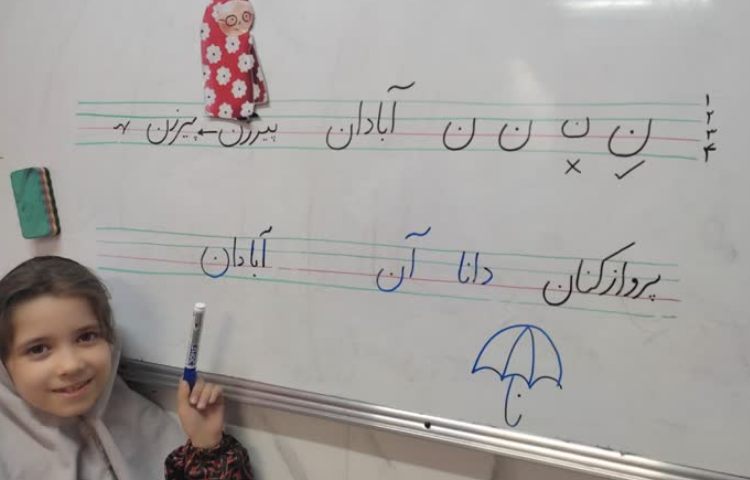 ۱
۲
۳
۴
نِ ن ن ن آبادان پیرزن ← پیرزن
✓ ×
پروازکنان دانا آن آبادان